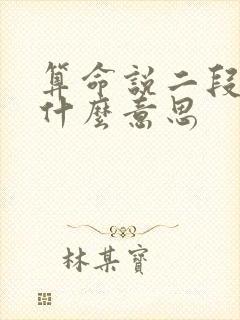 算命說二段
什麼意思
林某寶